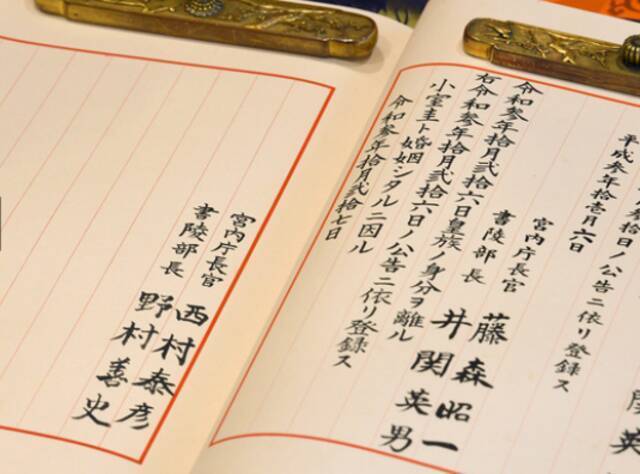 日ノ公告ニ依リ登録ス
平成参年拾壱月六日
宮内庁長官 藤森昭一
書陵部長 井関英男
令和参年拾月弐拾六日皇族ノ身分ヲ離ル
小室圭ト婚姻シタルニ因ル
右令和参年拾月弐拾六日ノ公告ニ依リ登録ス
令和参年拾月弐拾七日
宮内庁長官 西村泰彦
書陵部長 野村善史